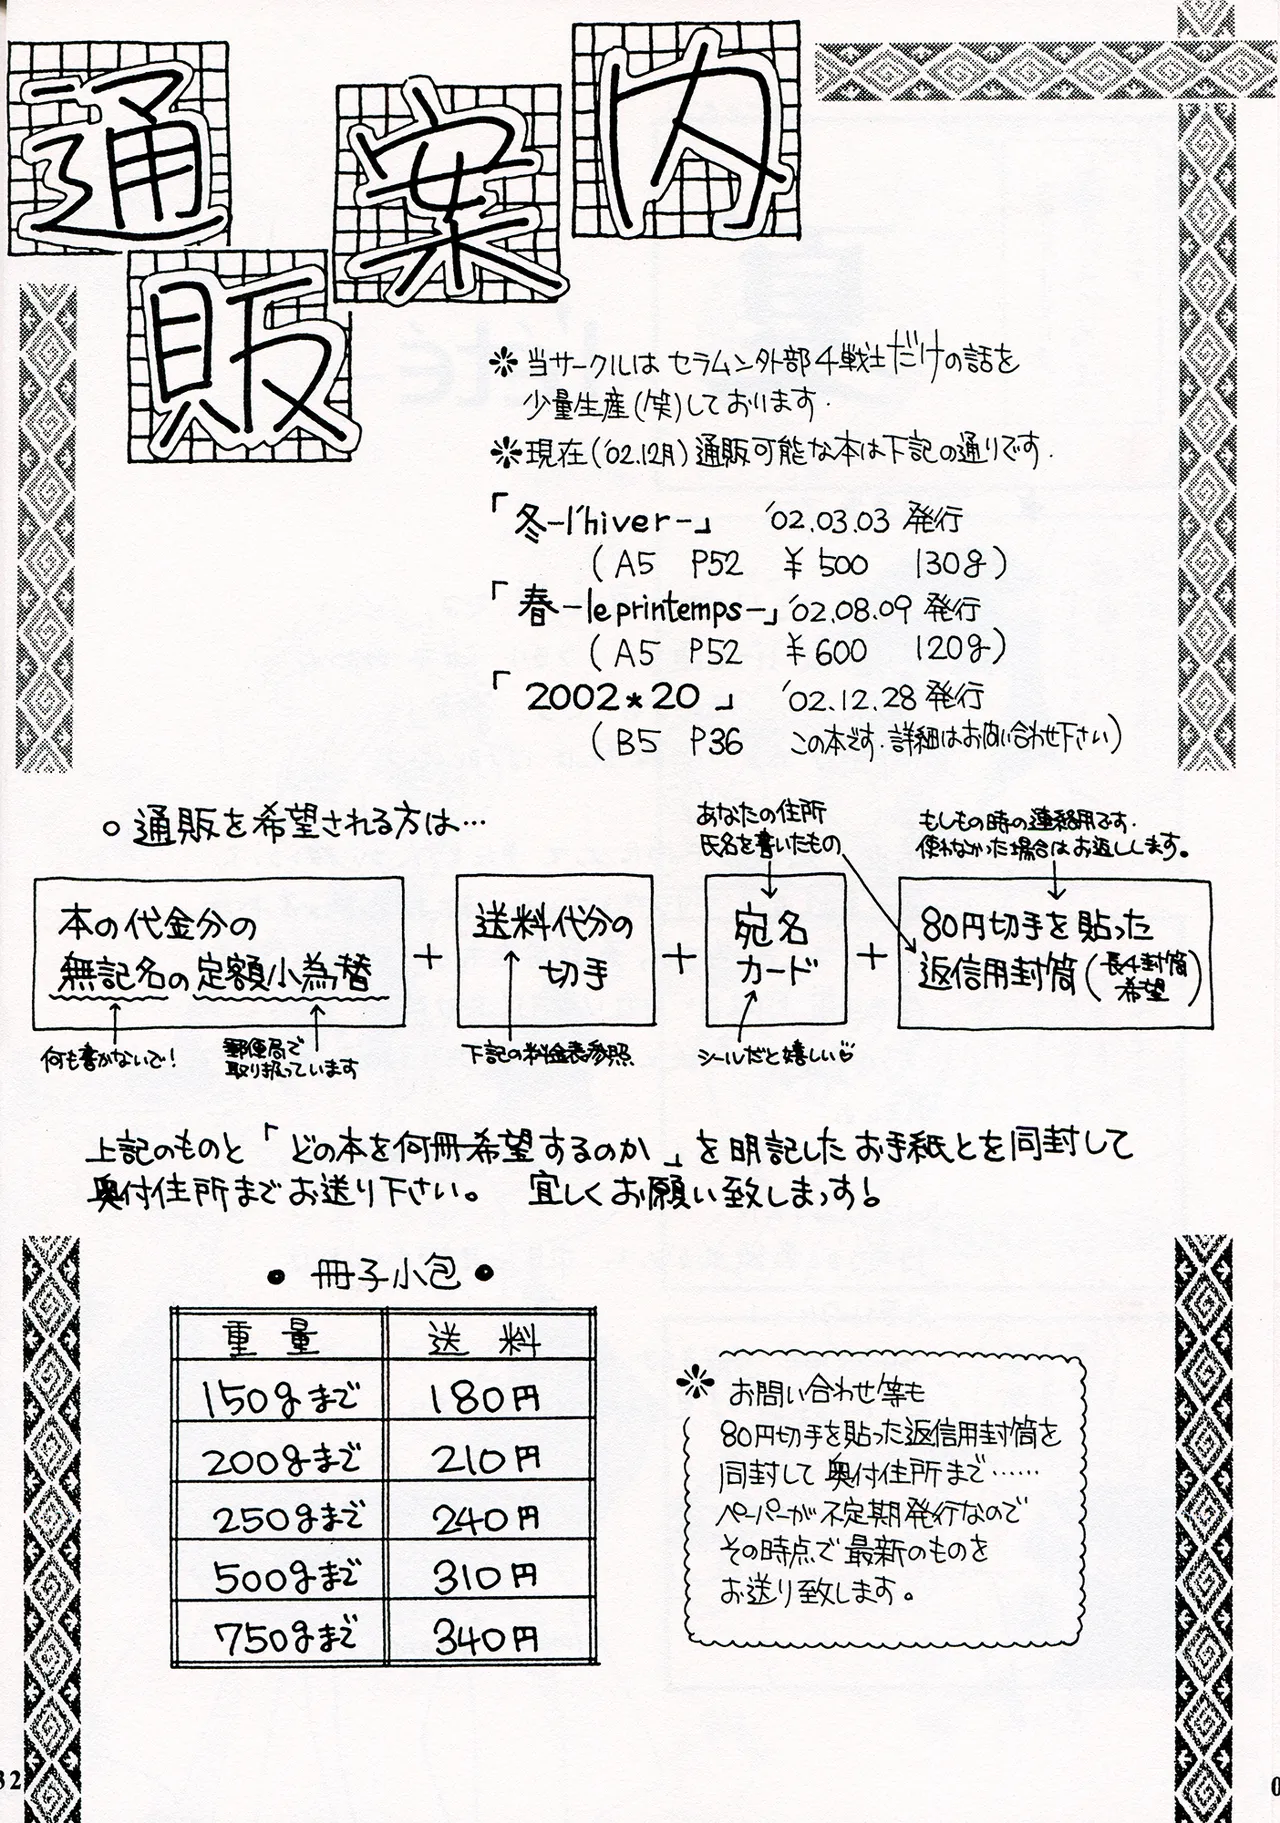 通販案内
※当サークルはセラムン外部4戦士だけの話を
少量生産(笑)しております.
※現在('02.12月)通販可能な本は下記の通りです.
「冬-l'hiver-」 '02.03.03 発行
(A5 P52 ¥500 130g)
「春-le printemps-」'02.08.09 発行
(A5 P52 ¥600 120g)
「2002*20」 '02.12.28 発行
(B5 P36 この本です.詳細はお問い合わせ下さい)
○通販を希望される方は…
あなたの住所
氏名を書いたもの
もしもの時の連絡用です.
使わなかった場合はお返しします。
本の代金分の
無記名の定額小為替
+
送料代分の
切手
+
宛名
カード
+
80円切手を貼った
返信用封筒(長4封筒希望)
何も書かないで!
郵便局で
取り扱っています
下記の料金表参照
シールだと嬉しい♡
上記のものと「どの本を何冊希望するのか」を明記したお手紙とを同封して
奥付住所までお送り下さい。 宜しくお願い致しまっす!
●冊子小包●
重量 送料
150gまで 180円
200gまで 210円
250gまで 240円
500gまで 310円
750gまで 340円
※お問い合わせ等も
80円切手を貼った返信用封筒を
同封して奥付住所まで……
ペーパーが不定期発行なので
その時点で最新のものを
お送り致します。
32